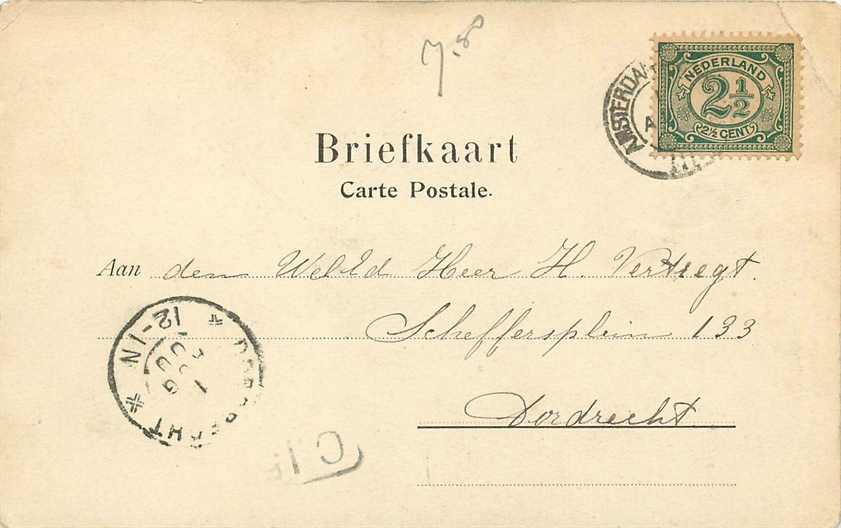 7.50
AMSTERDAM
NEDERLAND
2½
2½ CENT
Briefkaart
Carte Postale.
Aan den WelEd Heer H. Vertregt.
Scheffersplein 133
Dordrecht
DORDRECHT
12-1N